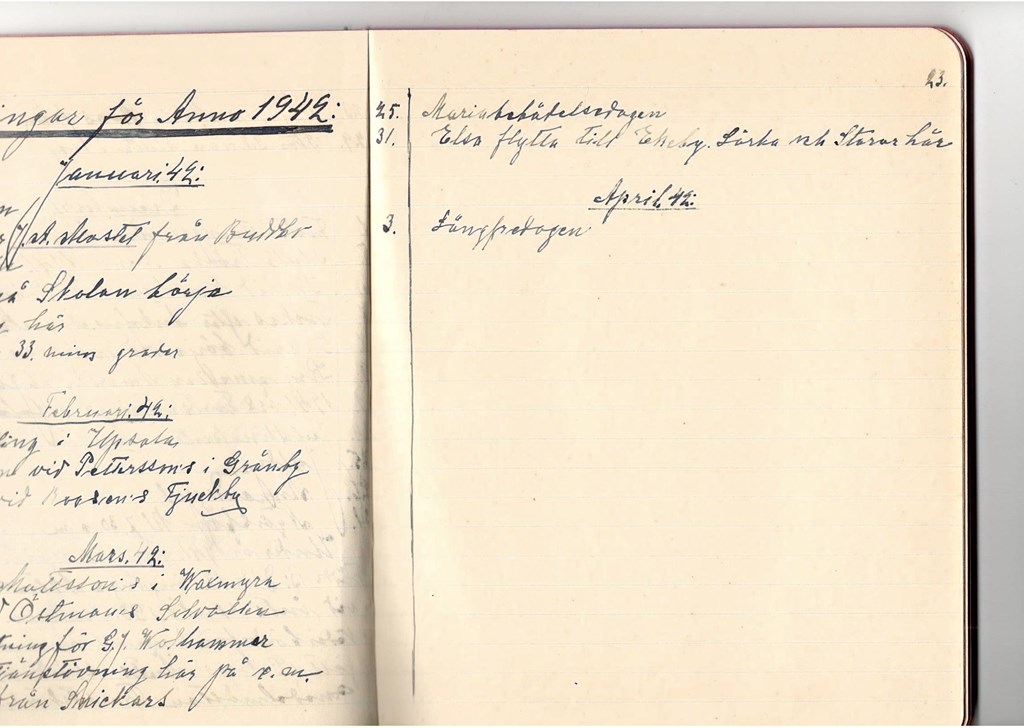 ingar för Anno 1942:
Januari.42:
J.A. Mostel från
Skolan börja
här
33. minos grader
Februari.42:
ing i Upsala
vid Petterssons i Gränby
Fjuckby
Mars.42:
Mattsson's i Waxmyra
Östmans
ning för G.J. Wolhammer
här på e.m
från Snickars
23.
25. Mariabebådelsedagen
31. Elsa flytta till Ekeby. Lärka och Starar här
April.42:
3. Långfredagen